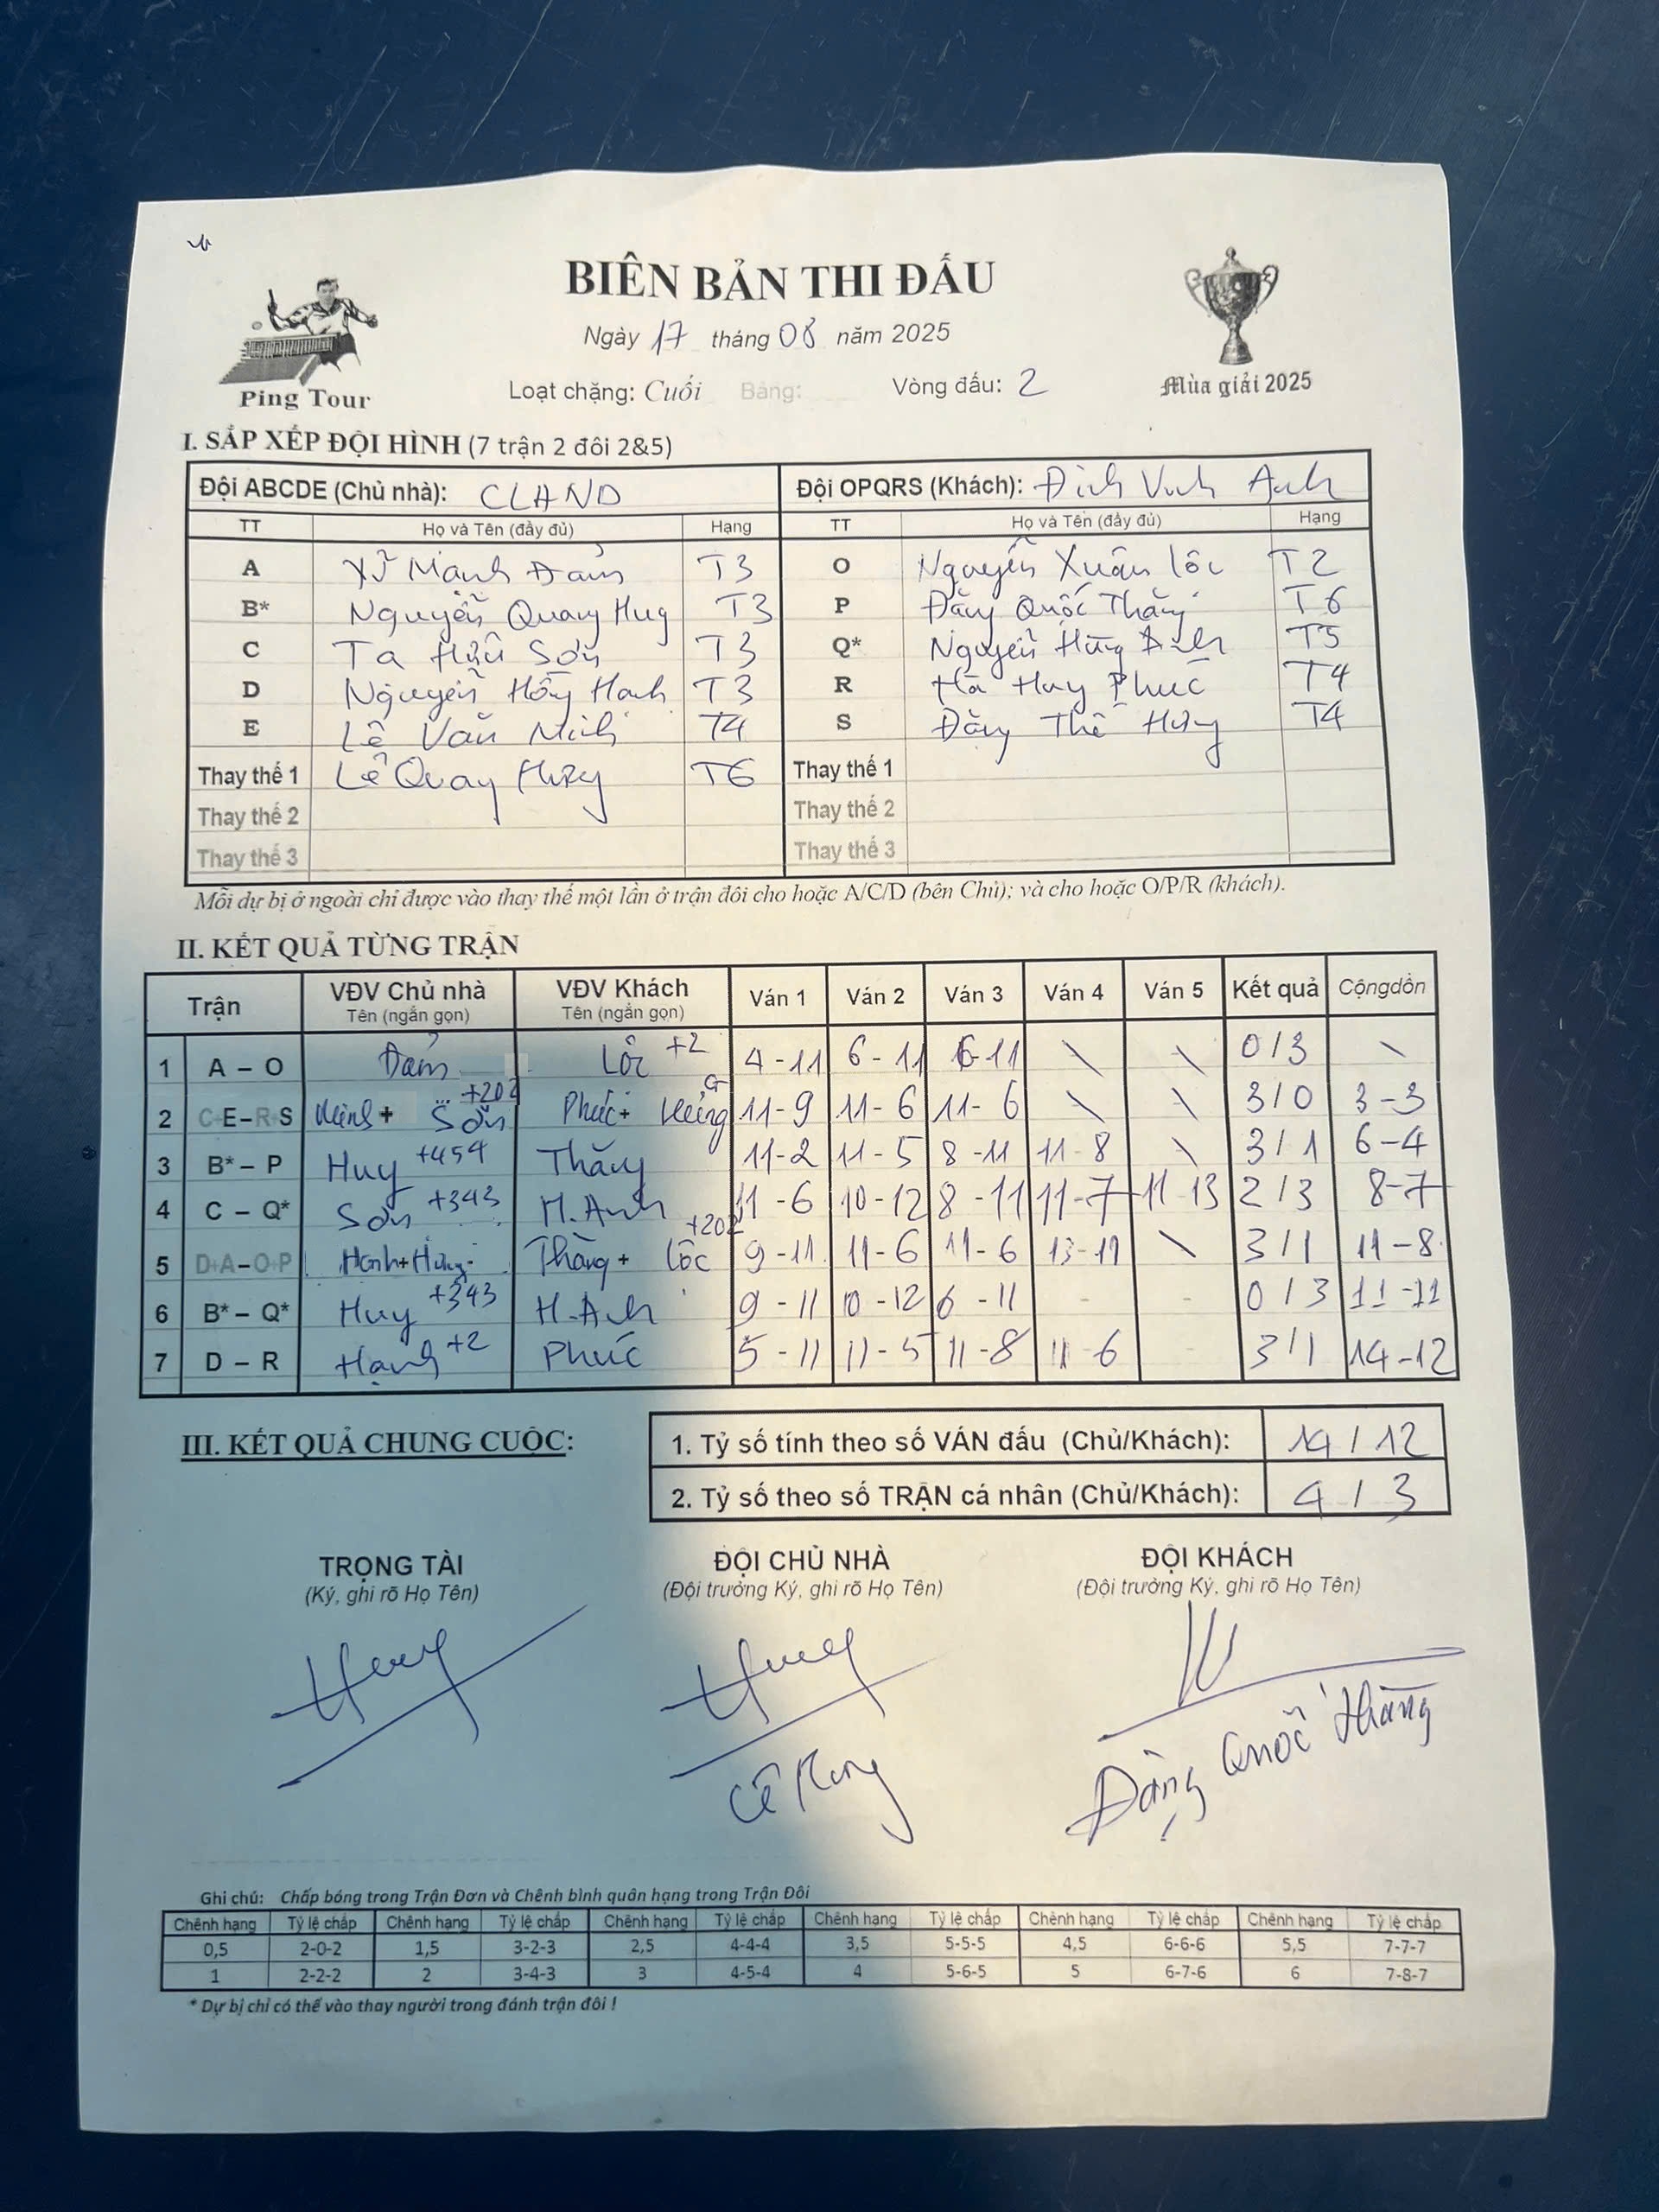 BIÊN BẢN THI ĐẤU
Ngày 17 tháng 08 năm 2025
Loạt chặng: Cuối Bảng: Vòng đấu: 2
Ping Tour
Mùa giải 2025
I. SẮP XẾP ĐỘI HÌNH (7 trận 2 đôi 2&5)
Đội ABCDE (Chủ nhà): CLAND Đội OPQRS (Khách): Đinh Vinh Anh
TT Họ và Tên (đầy đủ) Hạng TT Họ và Tên (đầy đủ) Hạng
A Mạnh Đảm T3 O Nguyễn Xuân Lôc T2
B* Nguyễn Quang Huy T3 P Đặng Quốc Thắng T6
C Tạ Hữu Sơn T3 Q* Nguyễn Hùng Anh T5
D Nguyễn Hồng Hạnh T3 R Hà Huy Phúc T4
E Lê Văn Minh T4 S Đặng Thế Hưng T4
Thay thế 1 Lê Quang Hưng T6 Thay thế 1
Thay thế 2 Thay thế 2
Thay thế 3 Thay thế 3
Mỗi dự bị ở ngoài chỉ được vào thay thế một lần ở trận đôi cho hoặc A/C/D (bên Chủ); và cho hoặc O/P/R (khách).
II. KẾT QUẢ TỪNG TRẬN
Trận VĐV Chủ nhà VĐV Khách Ván 1 Ván 2 Ván 3 Ván 4 Ván 5 Kết quả Cộngdồn
Tên (ngắn gọn) Tên (ngắn gọn)
1 A – O Đảm Lôc +2 4-11 6-11 6-11 \ \ 0/3 \
2 C+E–R+S Minh + Sơn +202 Phúc + Hưng 11-9 11-6 11-6 \ \ 3/0 3-3
3 B* – P Huy +454 Thắng 11-2 11-5 8-11 11-8 \ 3/1 6-4
4 C – Q* Sơn +343 H.Anh 11-6 10-12 8-11 11-7 11-13 2/3 8-7
5 D+A–O+P Hạnh+Hưng Thắng + Lôc +202 9-11 11-6 11-6 13-11 \ 3/1 11-8
6 B* – Q* Huy +343 H.Anh 9-11 10-12 6-11 - - 0/3 11-11
7 D – R Hạnh +2 Phúc 5-11 11-5 11-8 11-6 - 3/1 14-12
III. KẾT QUẢ CHUNG CUỘC:
1. Tỷ số tính theo số VÁN đấu (Chủ/Khách): 14/12
2. Tỷ số theo số TRẬN cá nhân (Chủ/Khách): 4/3
TRỌNG TÀI ĐỘI CHỦ NHÀ ĐỘI KHÁCH
(Ký, ghi rõ Họ Tên) (Đội trưởng Ký, ghi rõ Họ Tên) (Đội trưởng Ký, ghi rõ Họ Tên)
Huy Huy
Đặng Quốc Thắng
Ghi chú: Chấp bóng trong Trận Đơn và Chênh bình quân hạng trong Trận Đôi
Chênh hạng Tỷ lệ chấp Chênh hạng Tỷ lệ chấp Chênh hạng Tỷ lệ chấp Chênh hạng Tỷ lệ chấp Chênh hạng Tỷ lệ chấp Chênh hạng Tỷ lệ chấp
0,5 2-0-2 1,5 3-2-3 2,5 4-4-4 3,5 5-5-5 4,5 6-6-6 5,5 7-7-7
1 2-2-2 2 3-4-3 3 4-5-4 4 5-6-5 5 6-7-6 6 7-8-7
* Dự bị chỉ có thể vào thay người trong đánh trận đôi !